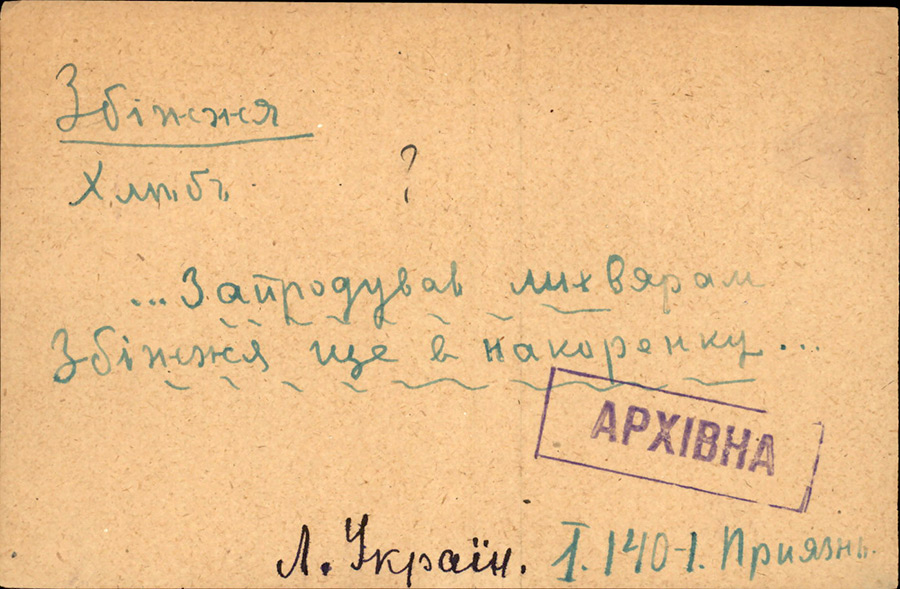 Збіжжя
Хлѣбъ ?
...Запродував лихвярам
Збіжжя ще в накоренку...
АРХІВНА
Л. Україн. I. 140-1. Приязнь.